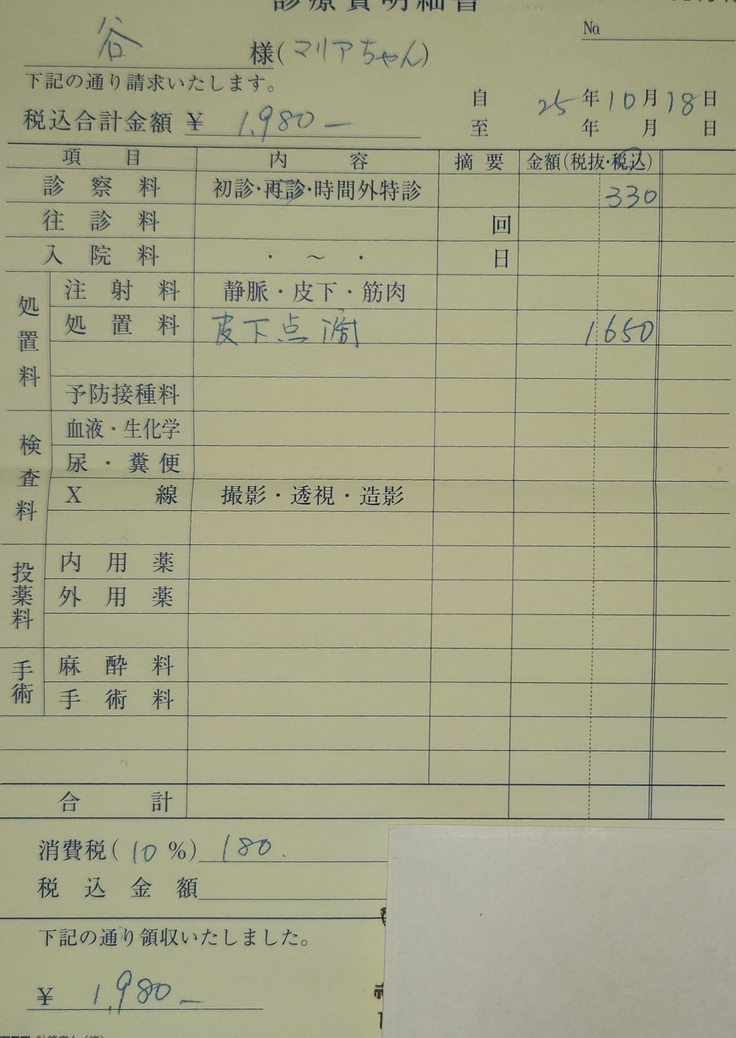 診療費明細書
No.
谷 様(マリアちゃん)
下記の通り請求いたします。
税込合計金額 ¥ 1,980-
自 25年10月18日
至 年 月 日
項目 内容 摘要 金額(税抜・税込)
診察料 初診・再診・時間外特診 330
往診料 回
入院料 ・ ～ ・ 日
処置料
注射料 静脈・皮下・筋肉
処置料 皮下点滴 1650
予防接種料
検査料
血液・生化学
尿・糞便
X線 撮影・透視・造影
投薬料
内用薬
外用薬
手術
麻酔料
手術料
合計
消費税(10%) 180.
税込金額
下記の通り領収いたしました。
¥ 1,980-